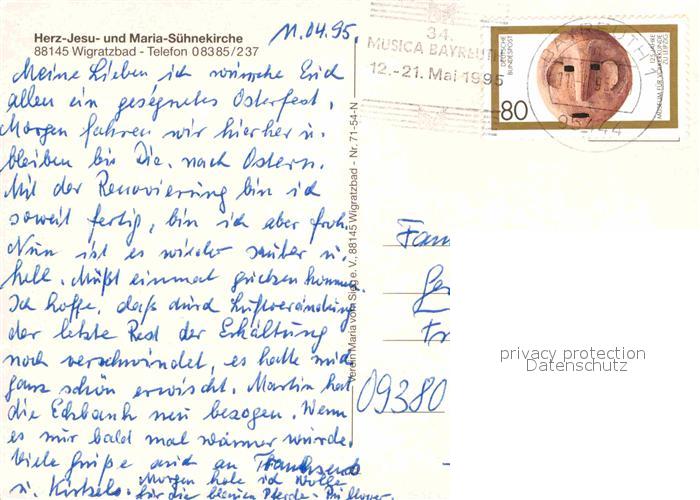 Herz-Jesu- und Maria-Sühnekirche
88145 Wigratzbad - Telefon 08385/237
11.04.95.
Meine Lieben ich wünsche Euch
allen ein gesegnetes Osterfest.
Morgen fahren wir hierher u.
bleiben bis Die. nach Ostern.
Mit der Renovierung bin ich
soweit fertig, bin ich aber froh.
Nun ist es wieder sauber u.
hell. Müßt einmal gucken kommen.
Ich hoffe, daß durch Luftveränderung
der letzte Rest der Erkältung
noch verschwindet, es hatte mich
ganz schön erwischt. Martin hat
die Eckbank neu bezogen. Wenn
es nur bald mal wärmer würde.
Viele Grüße auch an
u.
Morgen hole ich Wolle
für die kleinen Pferde-Pullover.
Verein Maria vom Sieg e. V., 88145 Wigratzbad - Nr. 71-54-N
34.
MUSICA BAYREUTH
12.-21. Mai 1995
BAYREUTH 1
95444
DEUTSCHE BUNDESPOST
80
125 JAHRE
MUSEUM FÜR VÖLKERKUNDE
ZU LEIPZIG
Fam
09380
privacy protection
Datenschutz